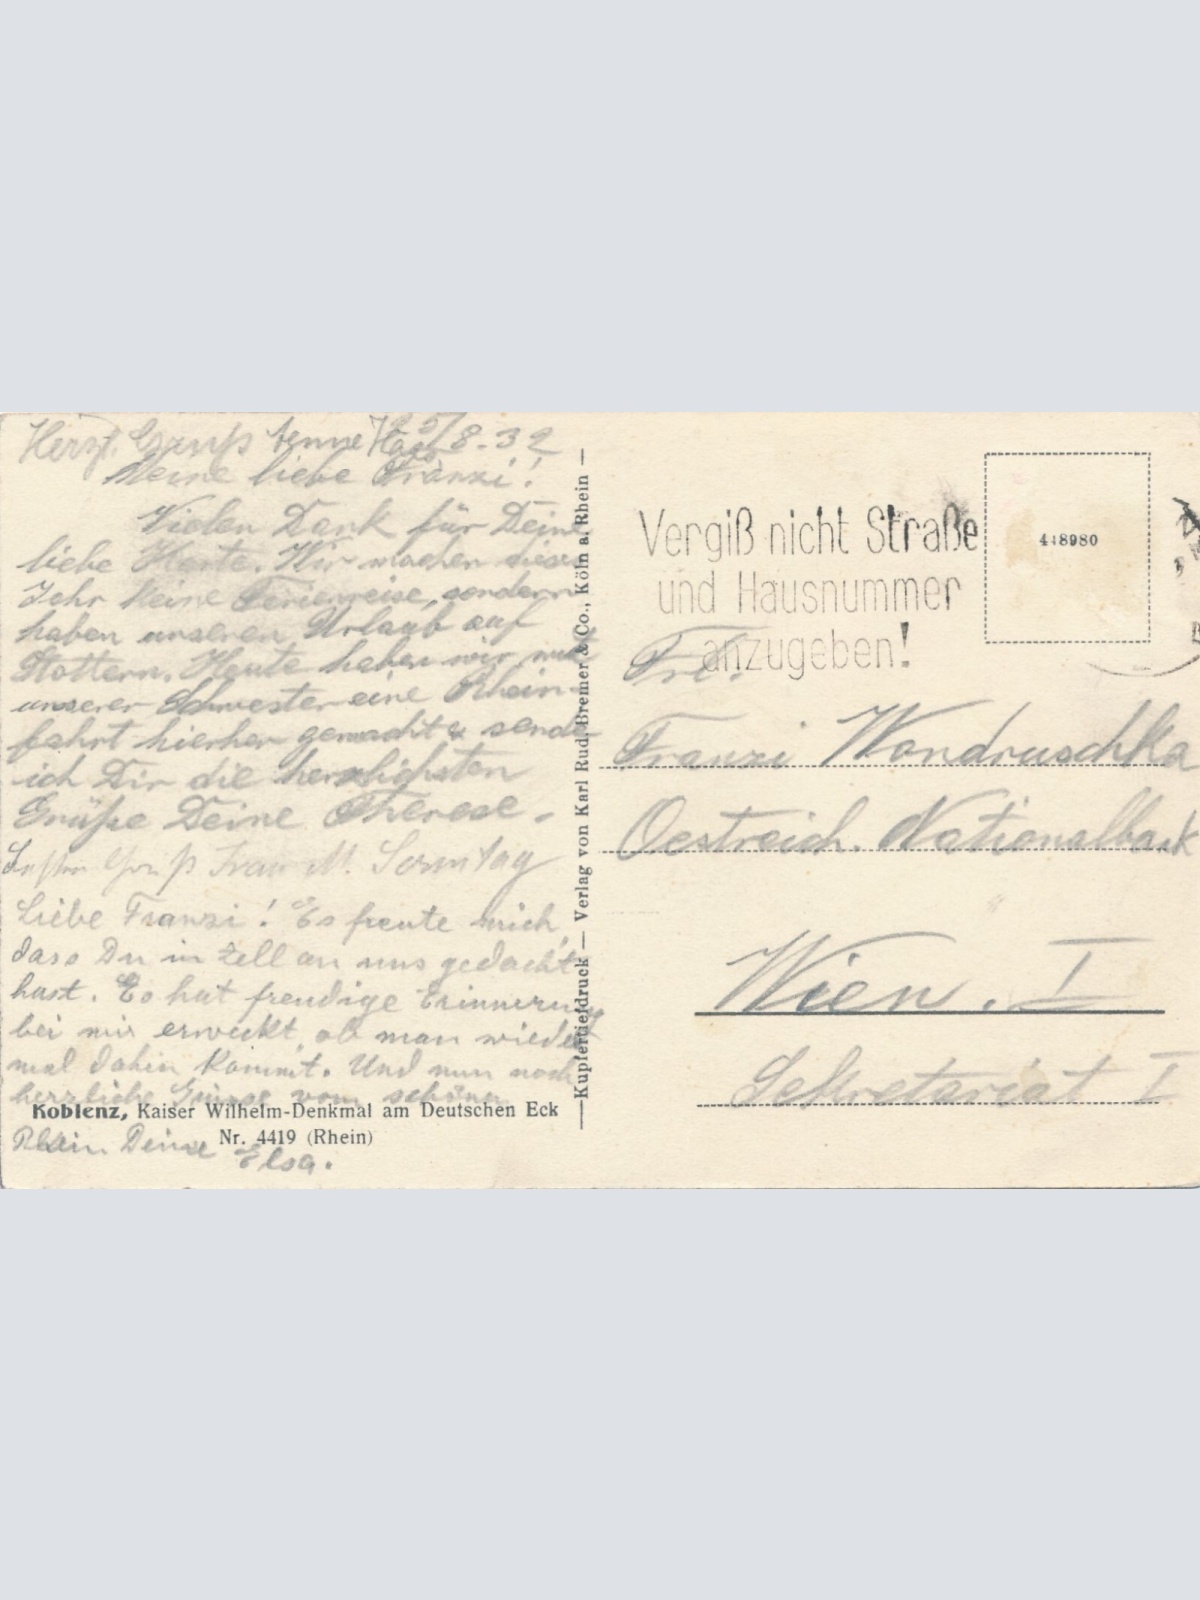 Herzl. Gruß
25/8-32
Meine liebe Fränzi!
Vielen Dank für Deine
liebe Karte. Wir machen dieses
Jahr keine Ferienreise, sondern
haben unseren Urlaub auf
Stottern. Heute haben wir mit
unserer Schwester eine Rhein-
fahrt hierher gemacht & sende
ich Dir die herzlichsten
Grüße Deine Therese.
Frau M. Sonntag
Liebe Franzi! Es freute mich,
dass Du in Zell an uns gedacht
hast. Es hat freudige Erinnerung
bei mir erweckt, ob man wieder
mal dahin kommt. Und nun noch
herzliche Grüsse vom schönen
Rhein Deine Elsa.
Koblenz, Kaiser Wilhelm-Denkmal am Deutschen Eck
Nr. 4419 (Rhein)
Kupfertiefdruck — Verlag von Karl Rud. Bremer & Co., Köln a. Rhein —
Vergiß nicht Straße
und Hausnummer
anzugeben!
448980
Frl.
Franzi Wondruschka
Oestreich. Nationalbank
Wien. I
Sekretariat I